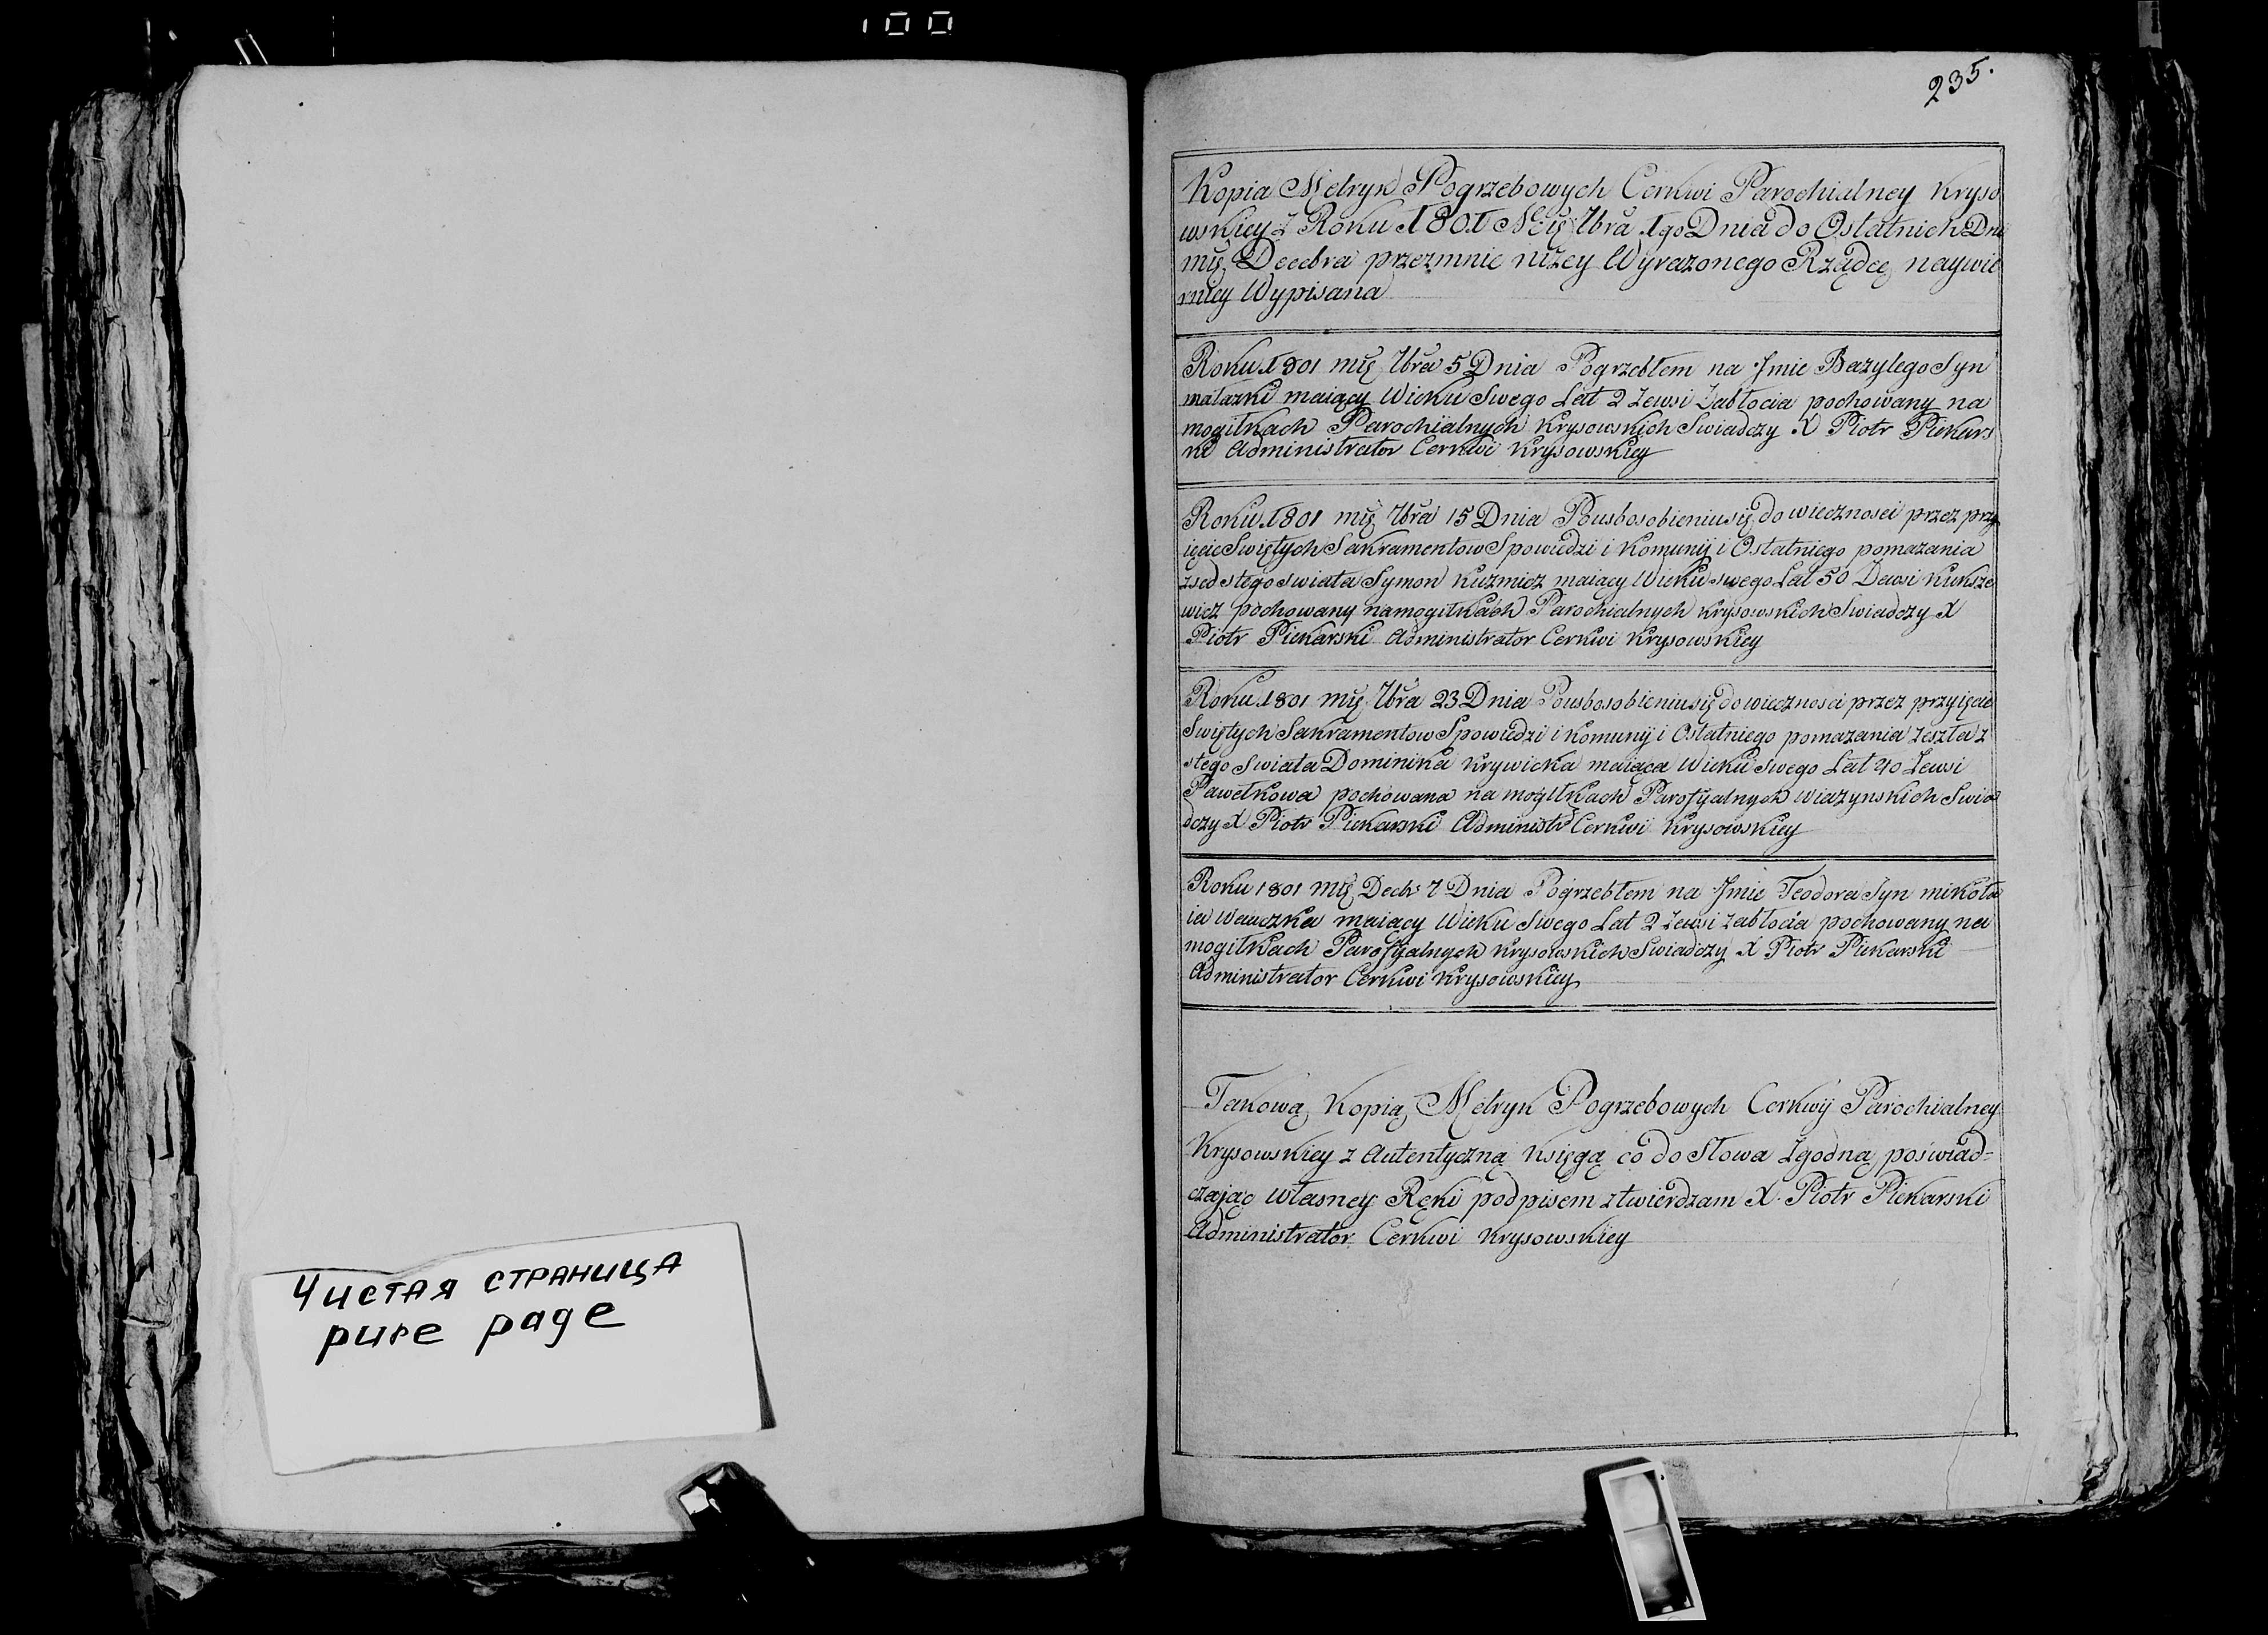 100
Чистая страница
pure page
235.
Kopia Metryk Pogrzebowych Cerkwi Parochialney Kryso
wskiey z Roku 1801 Mię 7bra 1go Dnia do Ostatnich Dni
mię Decebra przezmnie niżey Wyrazonego Rządcę naywie
rniey Wypisana
Roku 1801 mię 7bra 5 Dnia Pogrzebłem na Jmie Bazylego Syn
maiący Wieku Swego Lat 2 Zewsi Zabłocia pochowany na
mogiłkach Parochialnych Krysowskich Swiadczy X Piotr Piekars
ki Administrator Cerkwi Krysowskiey
Roku 1801 mię 7bra 15 Dnia Pousbosobieniusię do wiecznosci przez przy
ięcie Swiętych Sakramentow Spowiedzi i Komunij i Ostatniego pomazania
zsed stego swiata Symon Kuzmicz maiący Wieku swego Lat 50 Zewsi Kuksze
wicz pochowany namogiłkach Parochialnych Krysowskich Swiadczy X
Piotr Piekarski Administrator Cerkwi Krysowskiey
Roku 1801 mię 7bra 23 Dnia Pousbosobieniusię do wiecznosci przez przyięcie
Swiętych Sakramentow Spowiedzi i Komunij i Ostatniego pomazania Zeszła z
stego Swiata Dominika Krywicka maiąca Wieku Swego Lat 40 Zewsi
Pawełkowa pochowana na mogiłkach Parofyalnych Wiazynskich Swia
dczy X Piotr Piekarski Administr Cerkwi Krysowskiey
Roku 1801 mię Decb 7 Dnia Pogrzebłem na Jmie Teodora Syn mikoła
ia maiący Wieku Swego Lat 2 Zewsi Zabłocia pochowany na
mogiłkach Parofyalnych Krysowskich Swiadczy X Piotr Piekarski
Administrator Cerkwi Krysowskiey
Takową Kopią Metryk Pogrzebowych Cerkwij Parochialney
Krysowskiey z Autentyczną Księgą co do Słowa Zgodną poświad=
czając własney Ręki podpisem ztwierdzam X. Piotr Piekarski
Administrator Cerkwi Krysowskiey